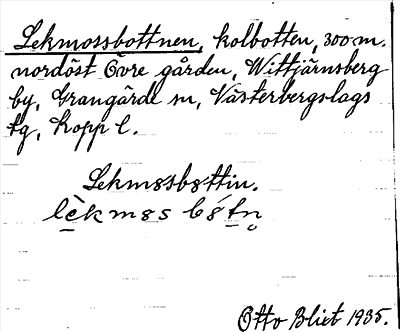 Lekmossbottnen, kolbotten, 300 m.
nordöst Övre gården, Wittjärnsberg
by, Grangärde sn, Västerbergslags
tg, Kopp l.
Lekmɵsbɵttin.
lèkmɵs bɵ́tn̥
Otto Blixt 1935.